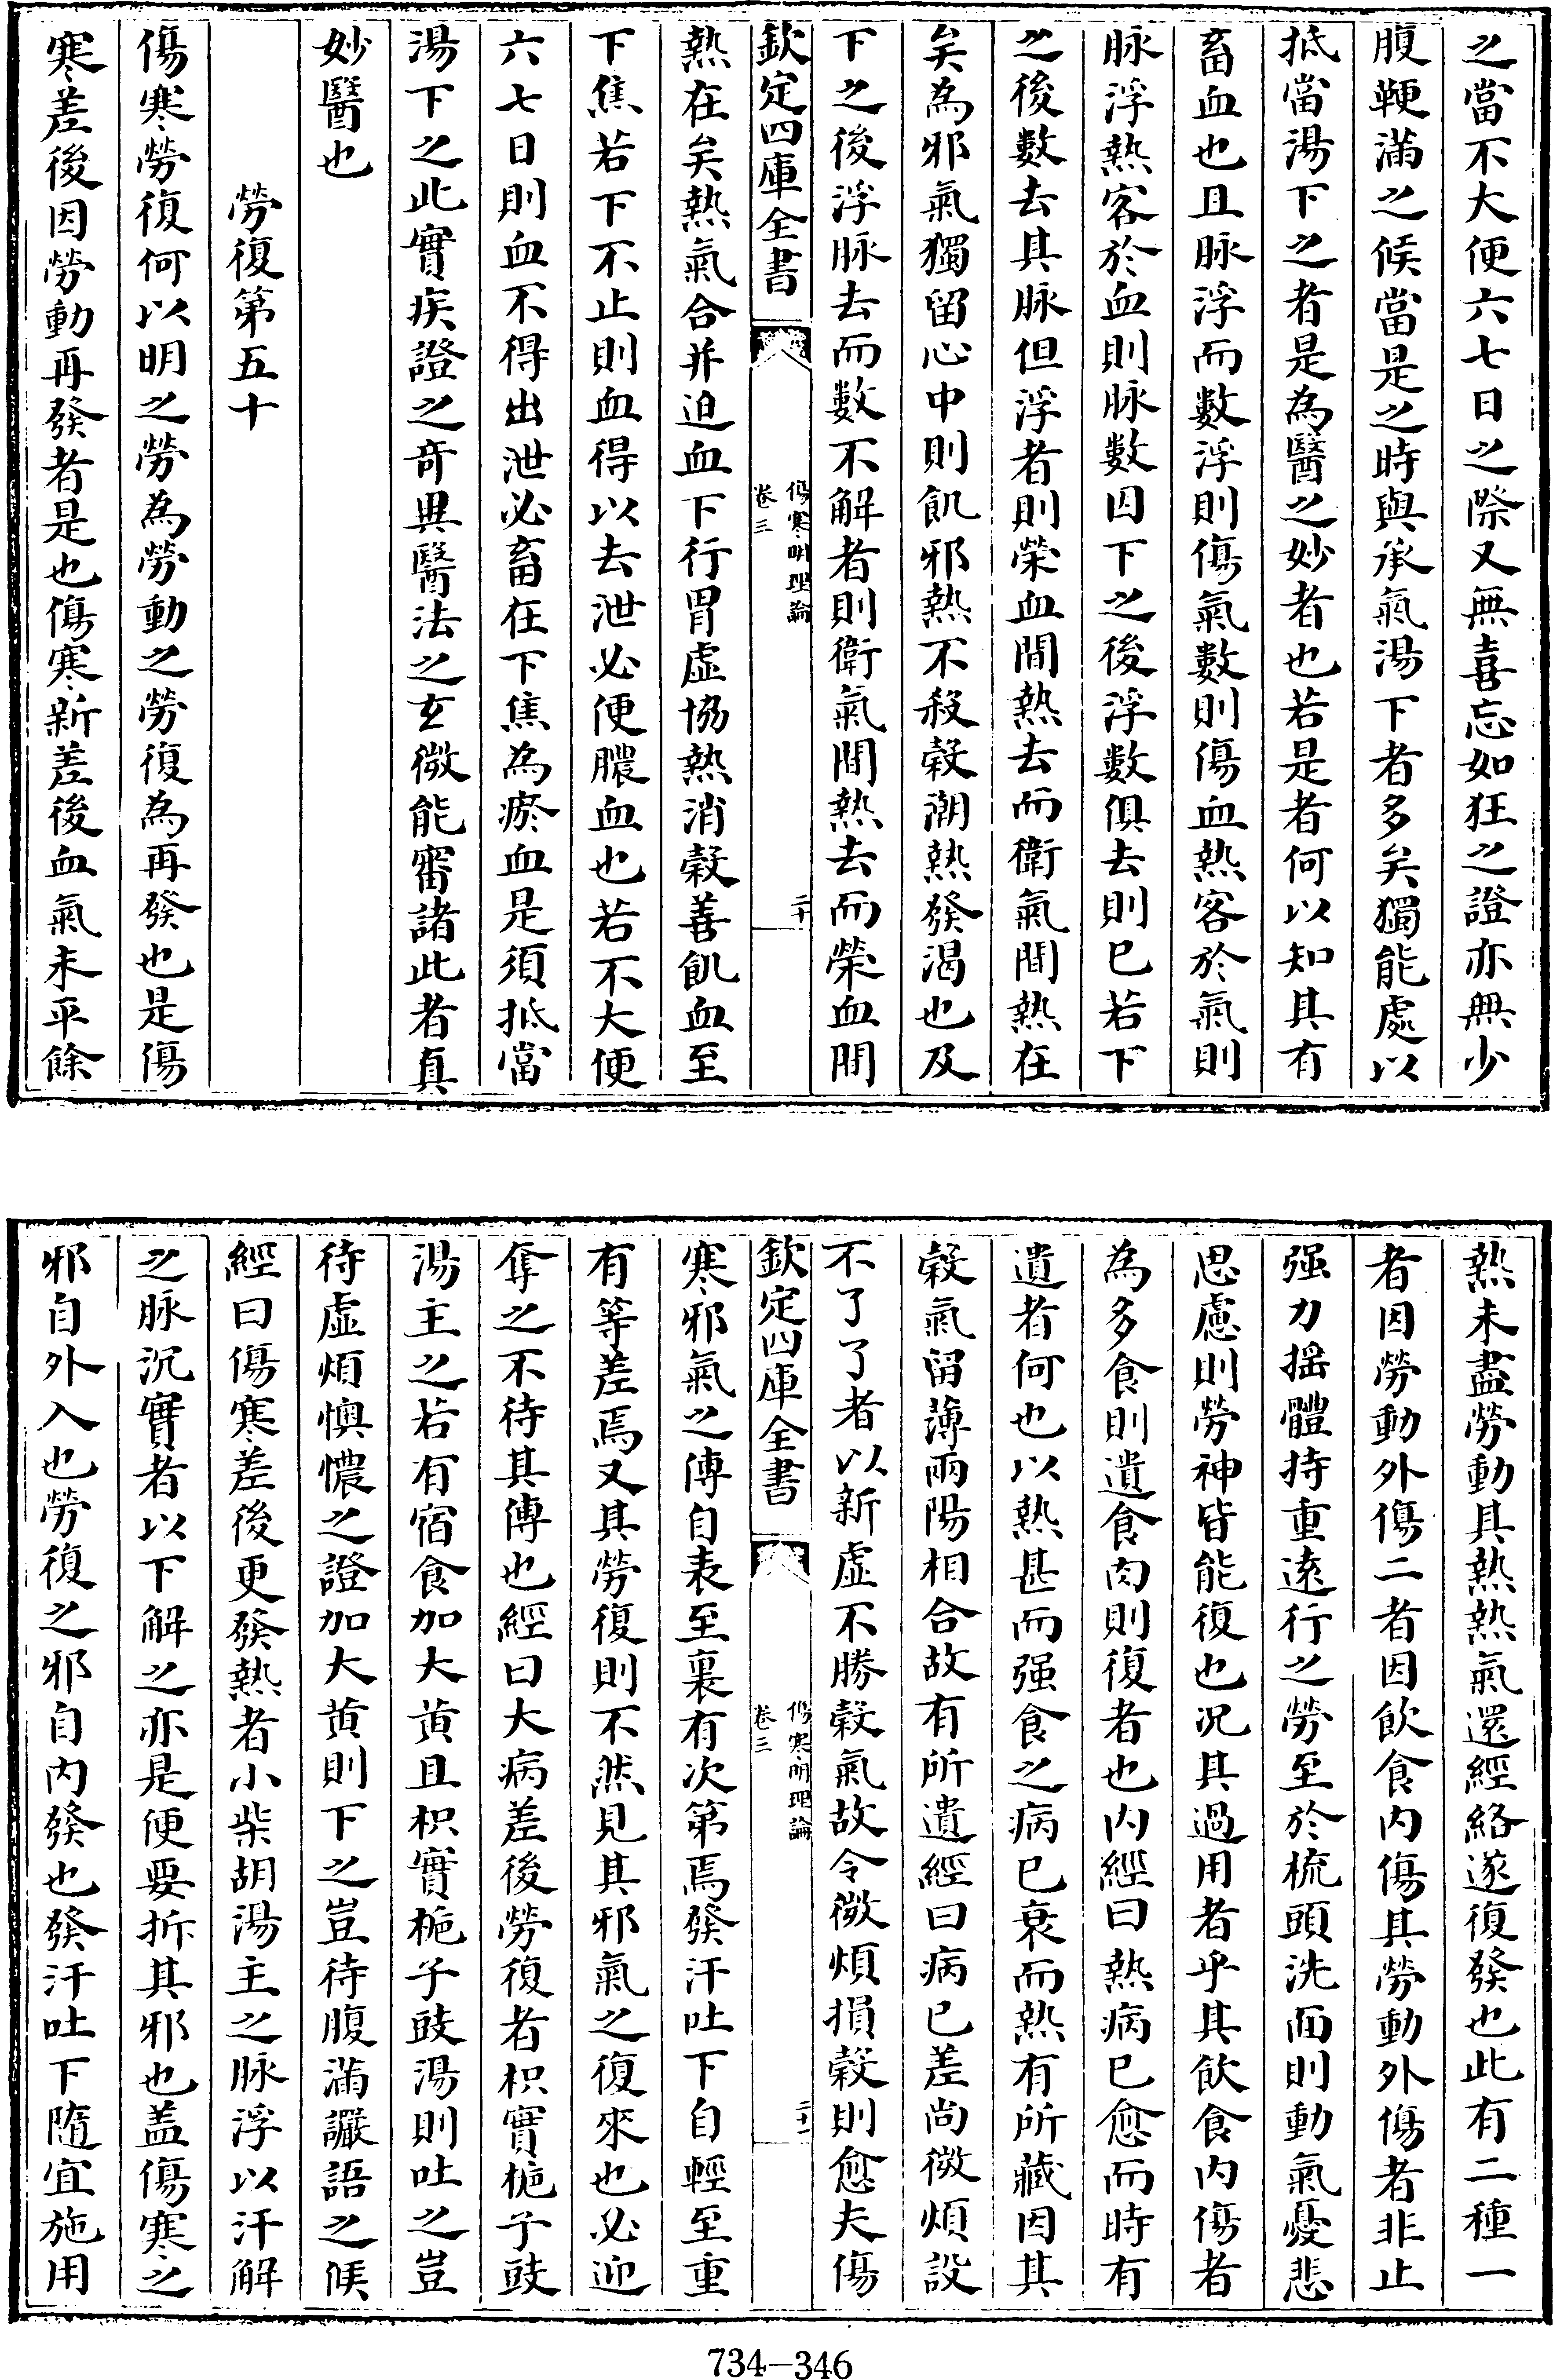 之當不大便六七日之際又無喜忘如狂之證亦無少
腹鞕滿之候當是之時與承氣湯下者多矣獨能處以
抵當湯下之者是為醫之妙者也若是者何以知其有
畜血也且脉浮而數浮則傷氣數則傷血熱客於氣則
脉浮熱客於血則脉數因下之後浮數俱去則已若下
之後數去其脉但浮者則榮血間熱去而衛氣間熱在
矣為邪氣獨留心中則飢邪熱不殺穀潮熱發渴也及
下之後浮脉去而數不解者則衛氣間熱去而榮血間
欽定四庫全書
傷寒明理論
卷三
二十
熱在矣熱氣合并迫血下行胃虛協熱消穀善飢血至
下焦若下不止則血得以去泄必便膿血也若不大便
六七日則血不得出泄必畜在下焦為瘀血是須抵當
湯下之此實疾證之竒異醫法之玄微能審諸此者真
妙醫也
勞復第五十
傷寒勞復何以明之勞為勞動之勞復為再發也是傷
寒差後因勞動再發者是也傷寒新差後血氣未平餘
熱未盡勞動其熱熱氣還經絡遂復發也此有二種一
者因勞動外傷二者因飲食内傷其勞動外傷者非止
强力揺體持重遠行之勞至於梳頭洗面則動氣憂悲
思慮則勞神皆能復也况其過用者乎其飲食内傷者
為多食則遺食肉則復者也内經曰熱病已愈而時有
遺者何也以熱甚而强食之病已衰而熱有所藏因其
穀氣留薄兩陽相合故有所遺經曰病已差尚微煩設
不了了者以新虛不勝穀氣故令微煩損穀則愈夫傷
欽定四庫全書
傷寒明理論
卷三
二十一
寒邪氣之傳自表至裏有次第焉發汗吐下自輕至重
有等差焉又其勞復則不然見其邪氣之復來也必迎
奪之不待其傳也經曰大病差後勞復者枳實梔子豉
湯主之若有宿食加大黄且枳實梔子豉湯則吐之豈
待虛煩懊憹之證加大黄則下之豈待腹滿讝語之候
經曰傷寒差後更發熱者小柴胡湯主之脉浮以汗解
之脉沉實者以下解之亦是便要折其邪也盖傷寒之
邪自外入也勞復之邪自内發也發汗吐下隨宜施用
734-346